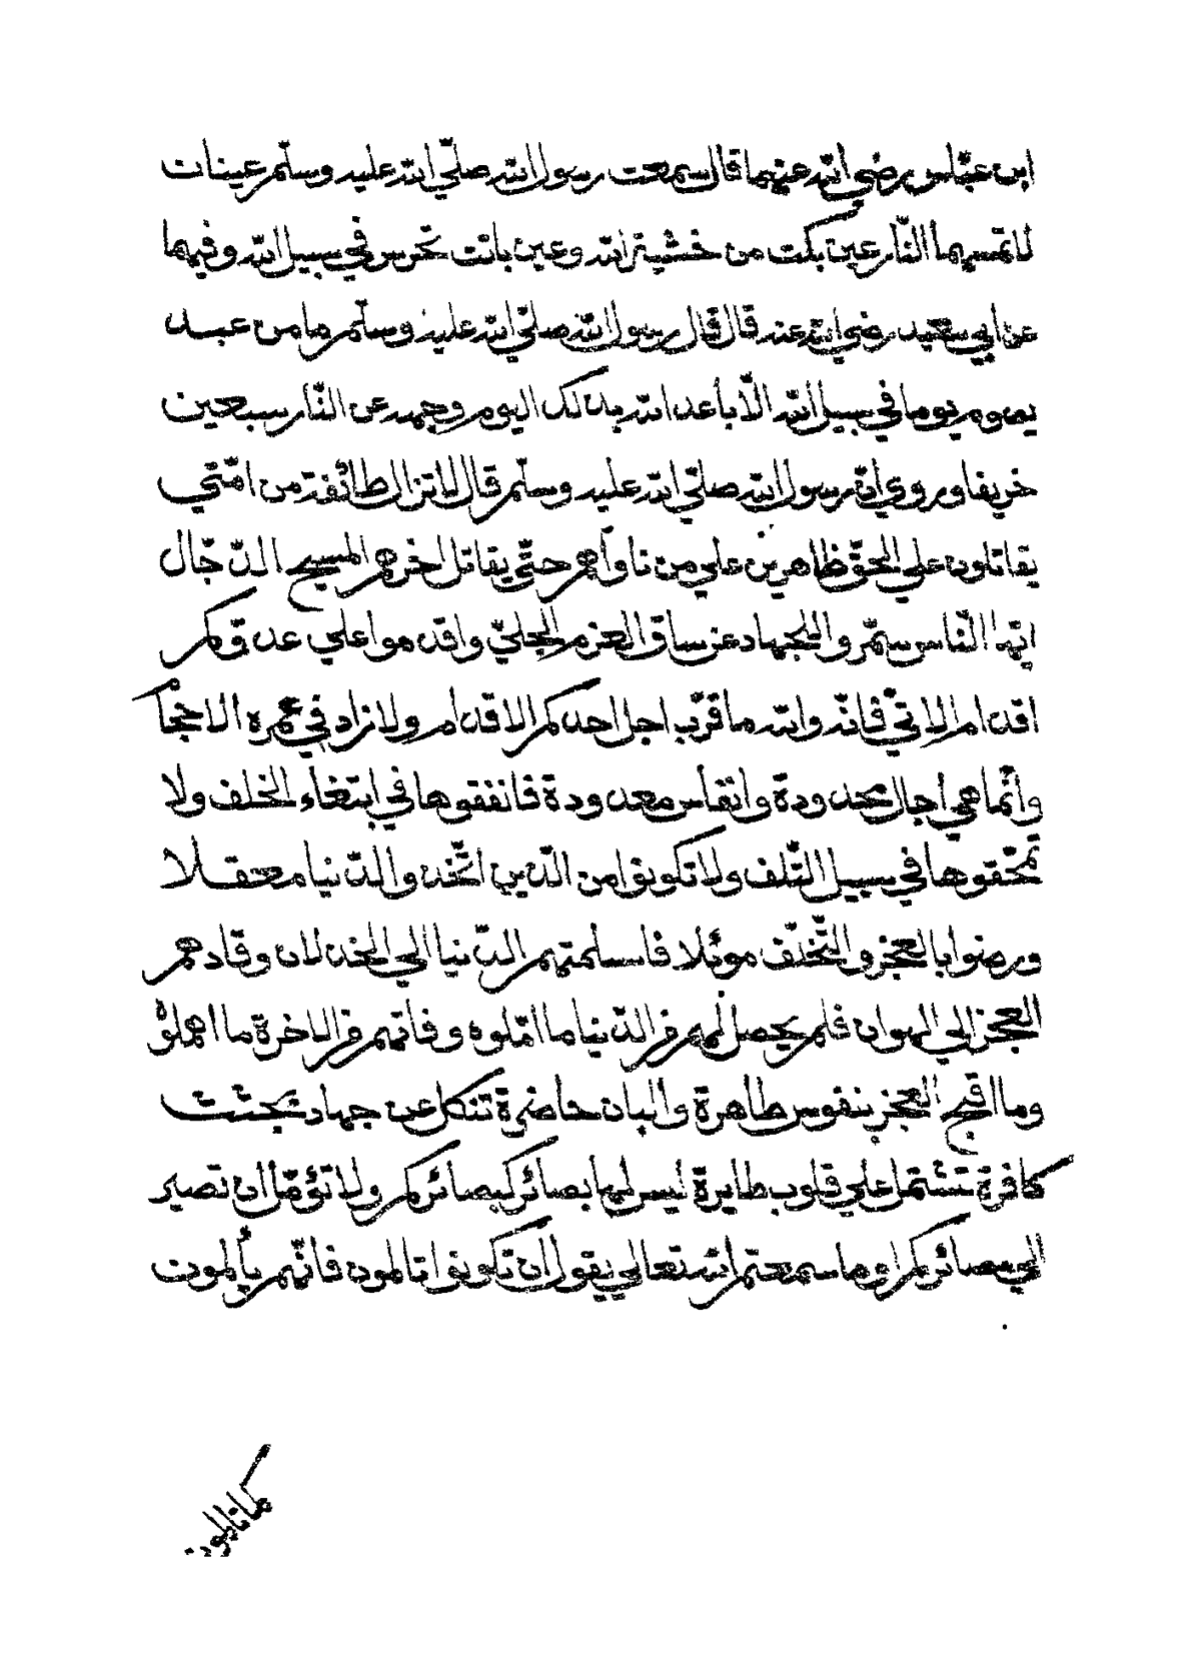 ابن عبّاس رضي الله عنهما قال سمعت رسول الله صلّي الله عليه وسلّم عينان
لا تمسهما النّار عين بكت من خشية الله وعين باتت تحرس في سبيل الله وفيهما
عن ابي سعيد رضي الله عنه قال قال رسول الله صلّي الله عليه وسلّم ما من عبد
يصوم يوما في سبيل الله الّا باعد الله بذلك اليوم وجهه عن النّار سبعين
خريفا وروي انّ رسول الله صلّي الله عليه وسلّم قال لا تزال طائفة من امّتي
يقاتلون علي الحقّ ظاهرين علي من ناوأهم حتّي يقاتل اخرهم المسيح الدّجّال
ايّها النّاس شمّروا للجهاد عن ساق العزم الجليّ واقدموا علي عدوّكم
اقدام الاتيّ فانّه والله ما قرّب اجل احدكم الاقدام ولا زاد في عمره الاحجام
وانّما هي اجال محدودة وانفاس معدودة فانفقوها في ابتغاء الخلف ولا
تمحّقوها في سبيل التّلف ولا تكونوا من الّذين اتّخذوا الدّنيا معقلا
ورضوا بالعجز والتّخلّف موئلا فاسلمتهم الدّنيا الي الخذلان وقادهم
العجز الي الهوان فلم يحصل لهم من الدّنيا ما امّلوه وفاتهم من الاخرة ما اهملوه
وما اقبح العجز بنفوس طاهرة وابدان حاضرة تنكل عن جهاد جثث
كافرة تشتمل علي قلوب طايرة ليس لها بصائر كبصائركم ولا تؤمّل ان تصير
الي مصائركم اوما سمعتم الله تعالي يقول ان تكونوا تالمون فانّهم يألمون
كما تالمون